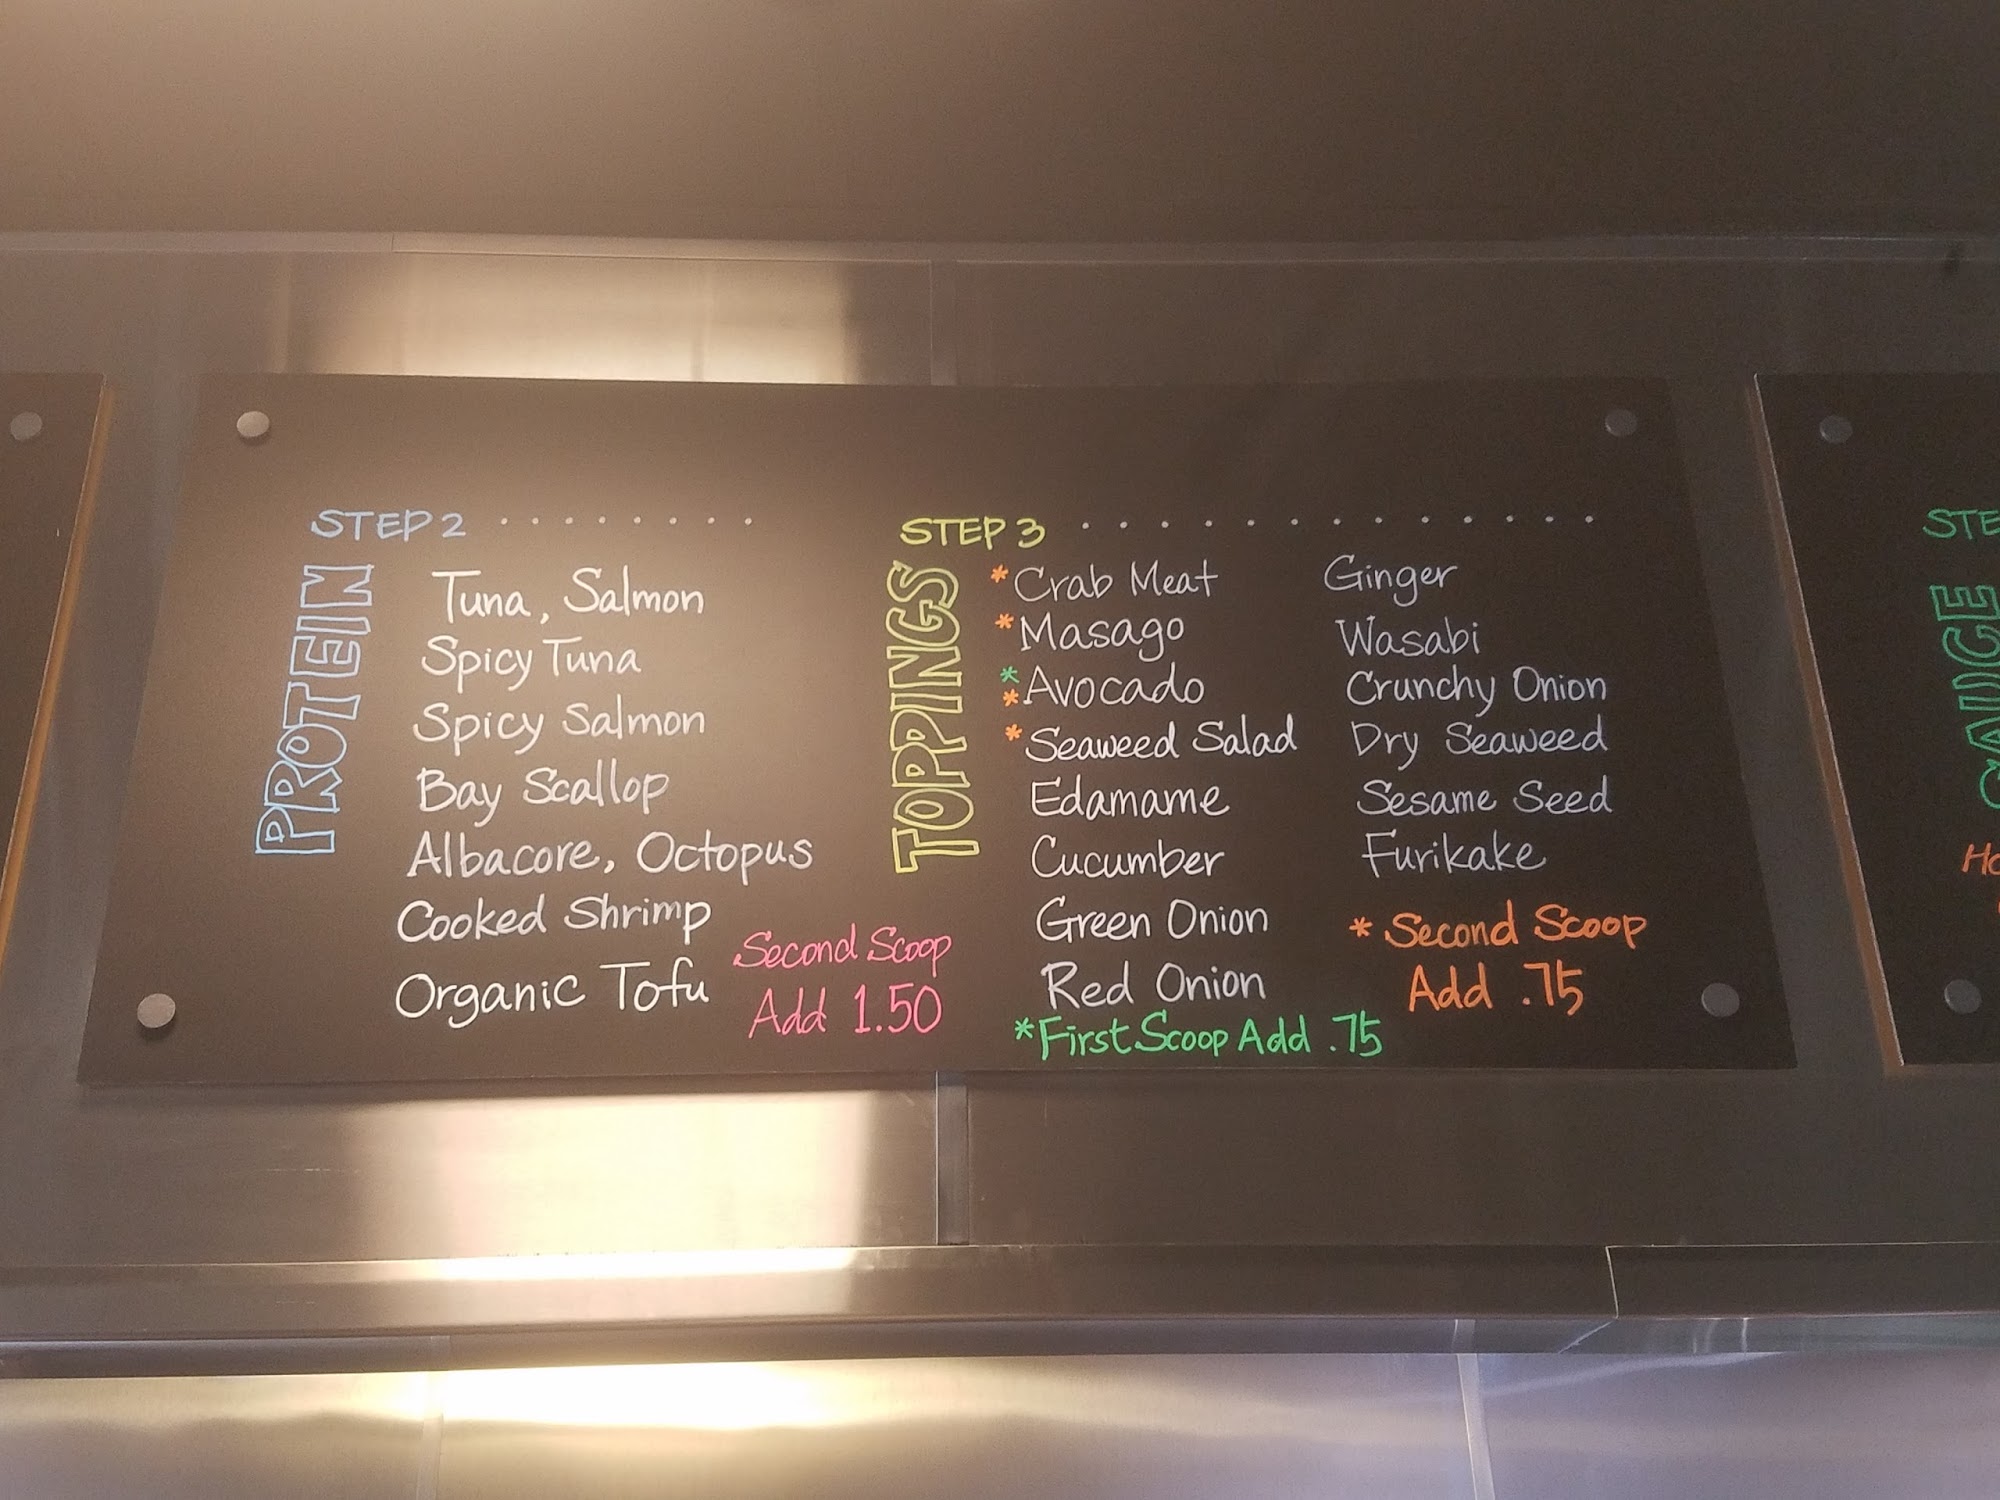 STEP 2 ........
PROTEIN
Tuna, Salmon
Spicy Tuna
Spicy Salmon
Bay Scallop
Albacore, Octopus
Cooked Shrimp
Organic Tofu
Second Scoop
Add 1.50
STEP 3 .............
TOPPINGS
*Crab Meat
*Masago
**Avocado
*Seaweed Salad
Edamame
Cucumber
Green Onion
Red Onion
*First Scoop Add .75
Ginger
Wasabi
Crunchy Onion
Dry Seaweed
Sesame Seed
Furikake
* Second Scoop
Add .75